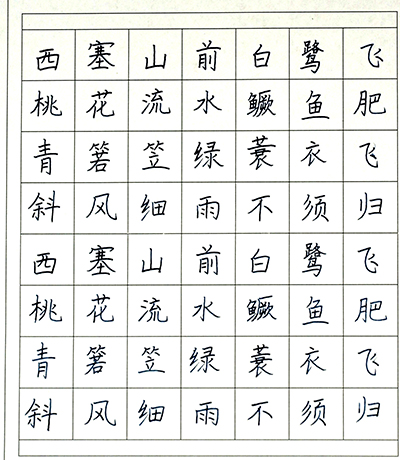 西塞山前白鹭飞
桃花流水鳜鱼肥
青箬笠绿蓑衣飞
斜风细雨不须归
西塞山前白鹭飞
桃花流水鳜鱼肥
青箬笠绿蓑衣飞
斜风细雨不须归